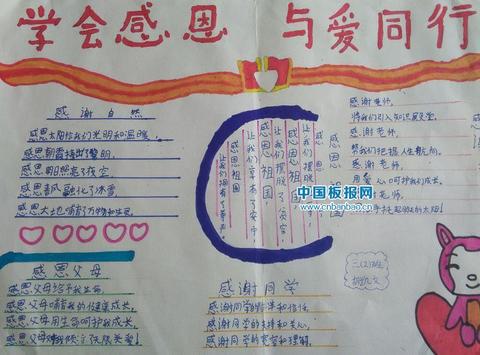 学会感恩 与爱同行
感谢自然
感恩太阳给我们光明和温暖,
感恩朝霞捧出了黎明,
感恩阳光照亮了夜空,
感恩春风融化了冰雪,
感恩大地哺育了万物和生灵。
感恩祖国
感恩祖国,
让我们摆脱了贫穷,
感恩祖国,
让我们享有了安宁,
感恩祖国
让我们拥有了尊严。
感谢老师,
将我们引入知识殿堂。
感谢老师,
帮我们把握人生航向。
感谢老师,
用爱心呵护我们成长。
老师,
手托起明天的太阳!
中国板报网
www.cnbanbao.cn
感恩父母
感恩父母给予我生命,
感恩父母哺育我的健康成长,
感恩父母用生命呵护我成长,
感恩父母
感谢同学
感谢同学的和信任
感谢同学的支持和关心,
感谢同学的宽容和理解。
三(2)班